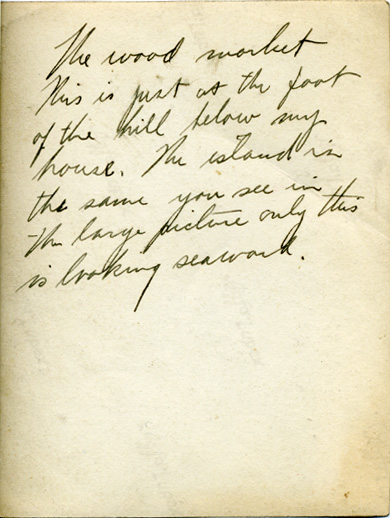 The wood market
This is just at the foot
of the hill below my
house. The island is
the same you see in
the large picture only this
is looking seaward.